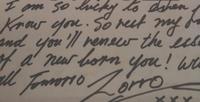 I am so lucky to
Know you. So rest my
and you'll renew the
of a new born you!
all Tomorro Zorro
xxx